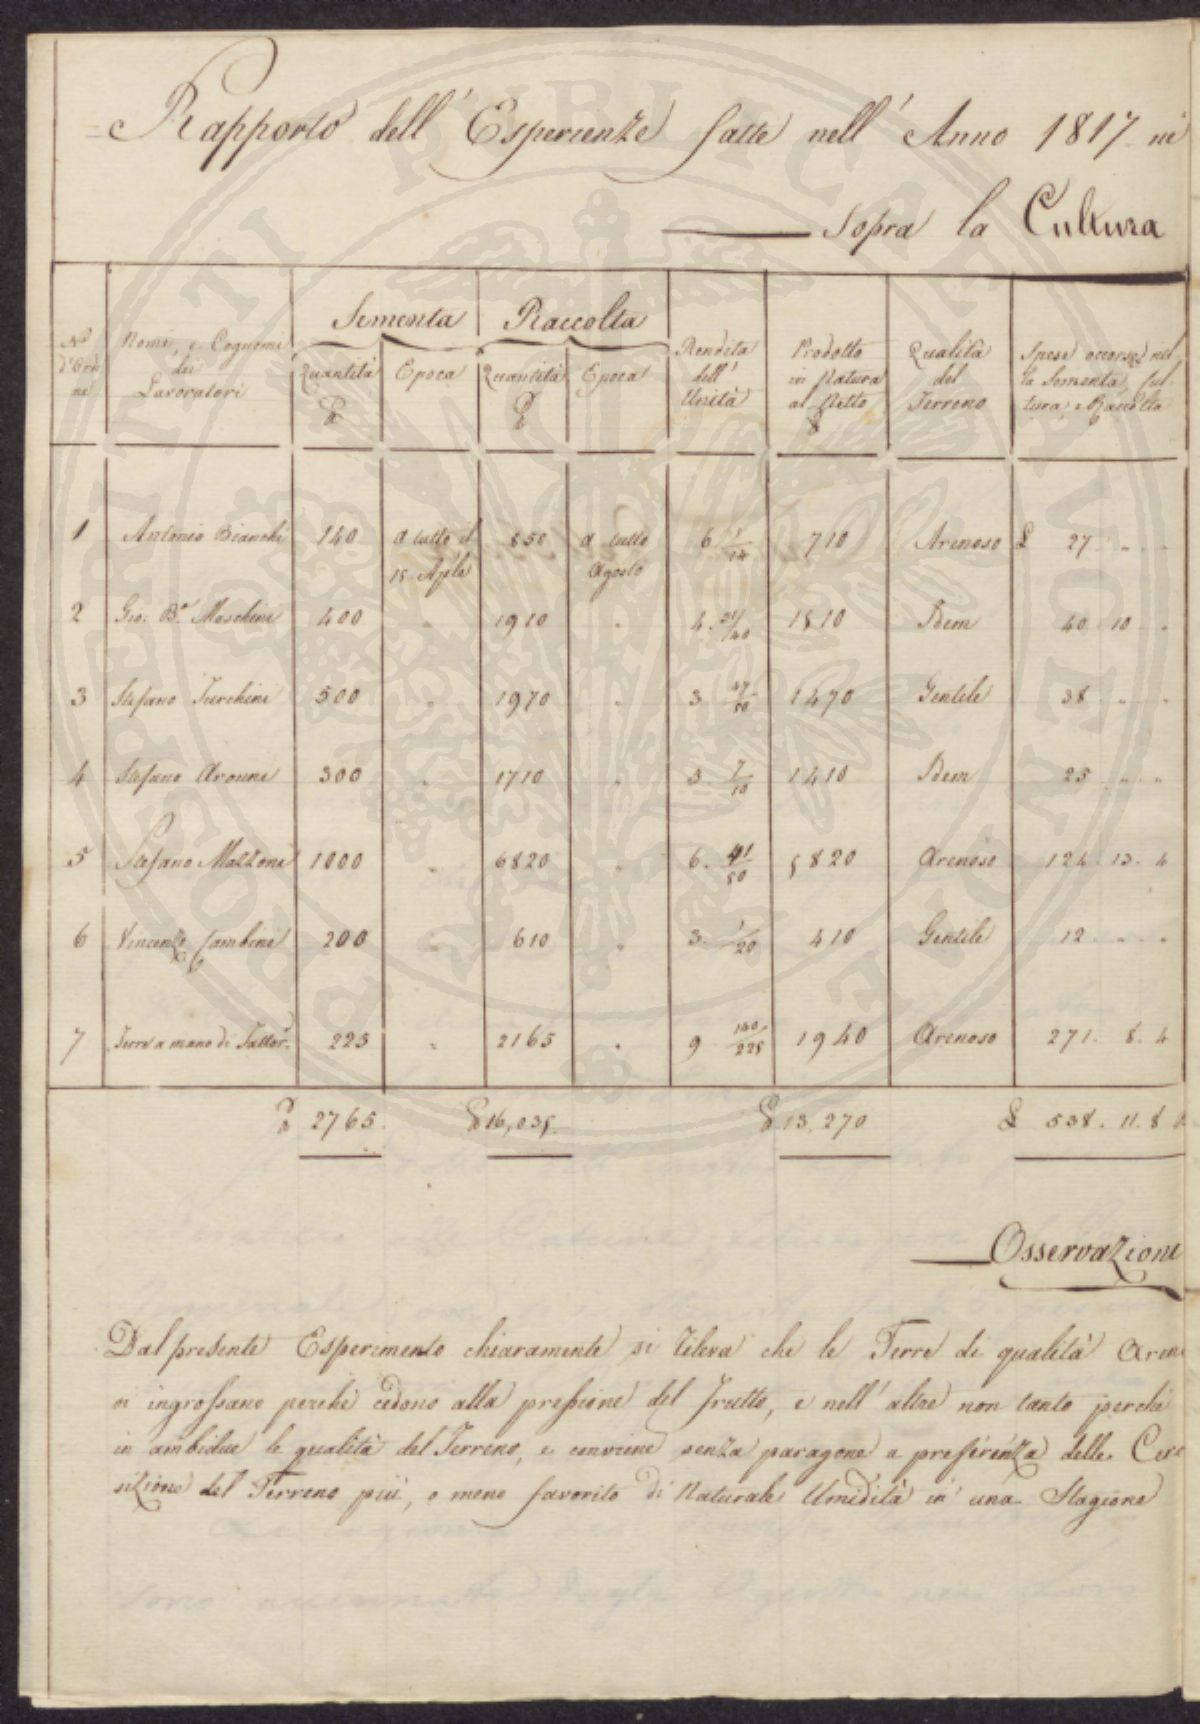 Rapporto dell' Esperienze fatte nell' Anno 1817 ne
Sopra la Cultura
N° d'Ordine
Nomi, e Cognomi dei Lavoratori
Sementa
Quantità
Epoca
Raccolta
Quantità
Epoca
Rendita dell' Unità
Prodotto in Natura al Netto
Qualità del Terreno
Spese occorse nella Sementa, Cultura, e Raccolta
1 Antonio Bianchi 140 a tutto il 15 Aple 850 a tutto Agosto 6. 1/14 710 Arenoso £ 27 " "
2 Gio: Ba Maschini 400 " 1910 " 4. 31/40 1510 Idem 40. 10. "
3 Stefano Turchini 500 " 1970 " 3. 47/50 1470 Gentile 38 " "
4 Stefano 300 " 1710 " 5. 7/10 1410 Idem 25 " "
5 Stefano Mazzoni 1000 " 6820 " 6. 41/50 5820 Arenoso 124. 13. 4
6 Vincenzo Cambini 200 " 610 " 3. 1/20 410 Gentile 12 " "
7 Terre a mano di Fattor. 225 " 2165 " 9 140/225 1940 Arenoso 271. 8. 4
2765. 16,035. 13,270 £ 538. 11. 8
Osservazioni
Dal presente Esperimento chiaramente si rileva che le Terre di qualità Aren
si ingrossano perchè cedono alla pressione del frutto, e nell' altre non tanto perchè
in ambidue le qualità del Terreno, e conviene senza paragone a preferenza delle Cere
sizione del Terreno più, o meno favorito di Naturale Umidità in una Stagione